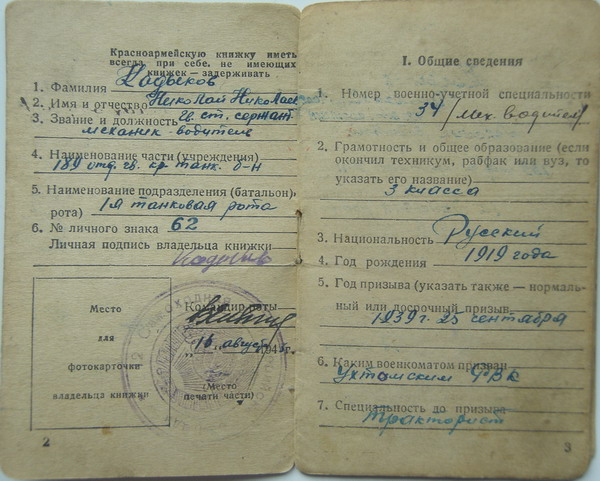 Красноармейскую книжку иметь
всегда при себе. не имеющих
книжек — задерживать
1. Фамилия Кадыков
2. Имя и отчество Николай Николаев
3. Звание и должность гв. ст. сержант
механик-водитель
4. Наименование части (учреждения)
189 отд. гв. кр танк. б-н
5. Наименование подразделения (батальон,
рота) 1я танковая рота
6. № личного знака 62
Личная подпись владельца книжки
Место
для
фотокарточки
владельца книжки
Командир роты
„15 август 1945г.
(Место
печати части)
2
I. Общие сведения
1. Номер военно-учетной специальности
34 / мех. водитель
2. Грамотность и общее образование (если
окончил техникум, рабфак или вуз, то
указать его название)
3 класса
3. Национальность Русский
4. Год рождения 1919 года
5. Год призыва (указать также — нормаль-
ный или досрочный призыв
1939 г. 25 сентября
6. Каким военкоматом призван
Ухтомским РВК
7. Специальность до призыва
тракторист
3